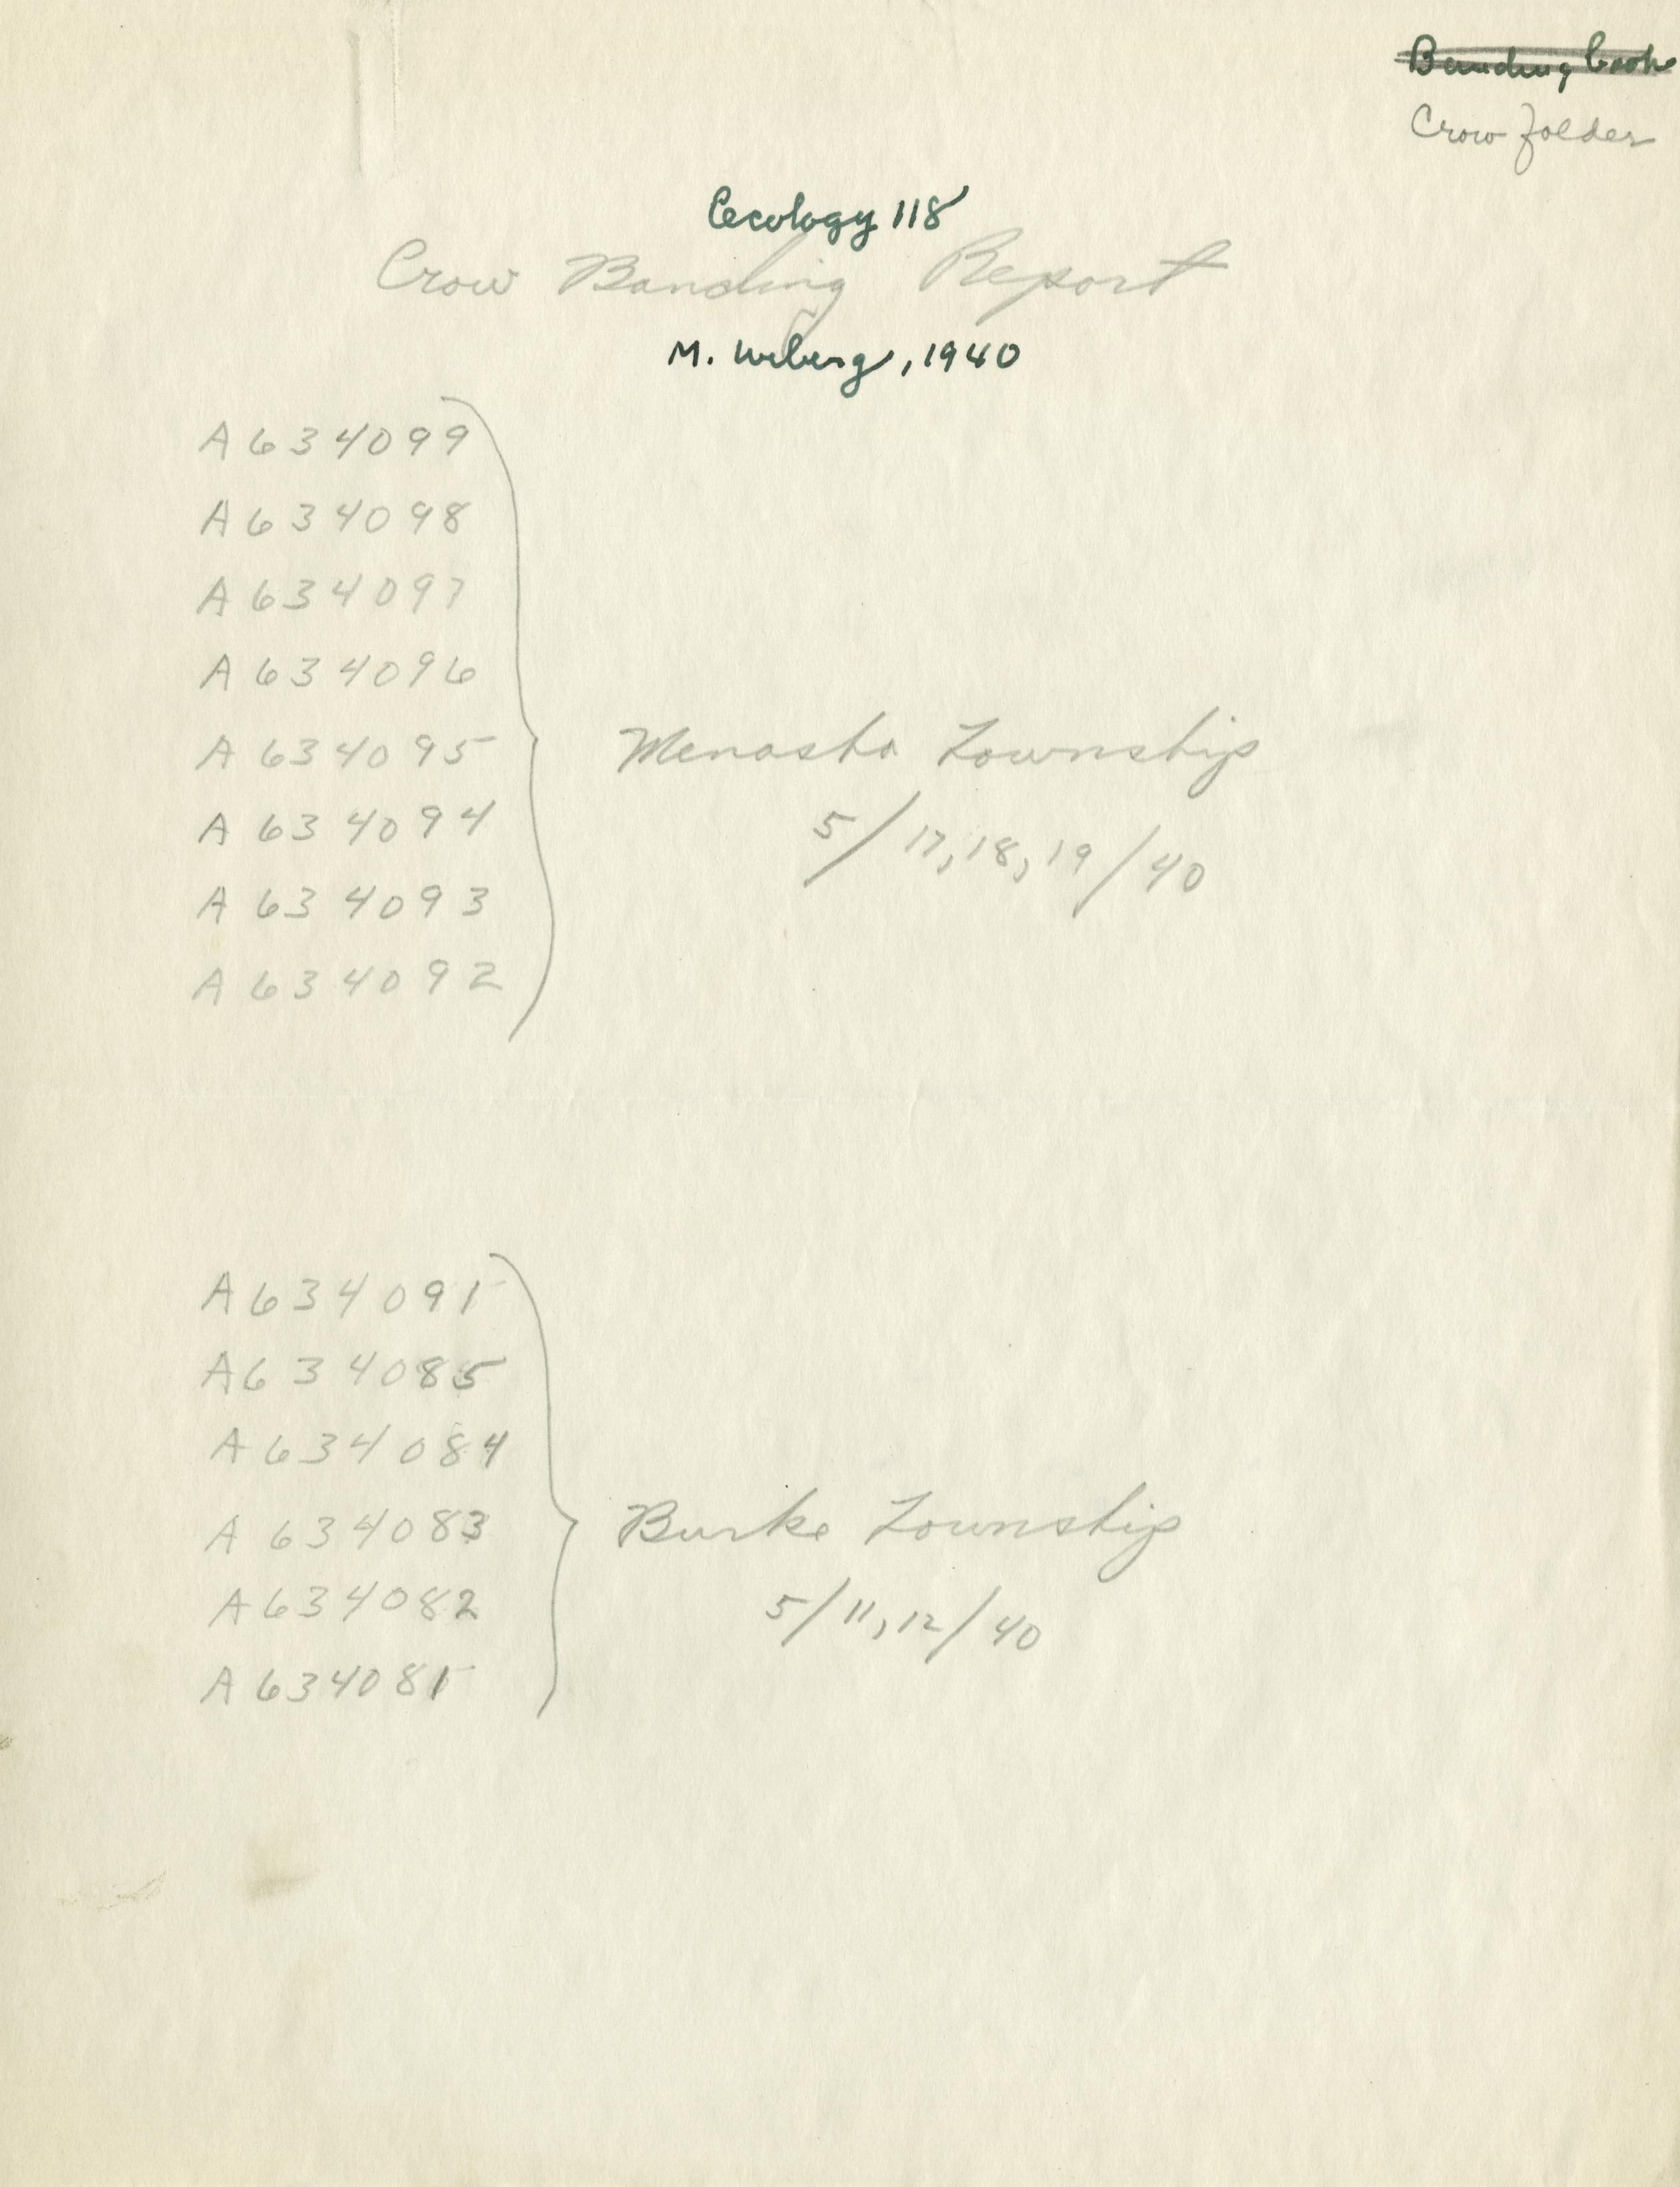 Banding book
Crow folder
Ecology 118
Crow Banding Report
M. Weberg, 1940
A634099
A634098
A634097
A634096
A634095
A634094
A634093
A634092
Menasha Township
5/17,18,19/40
A634091
A634085
A634084
A634083
A634082
A634081
Burke Township
5/11,12/40